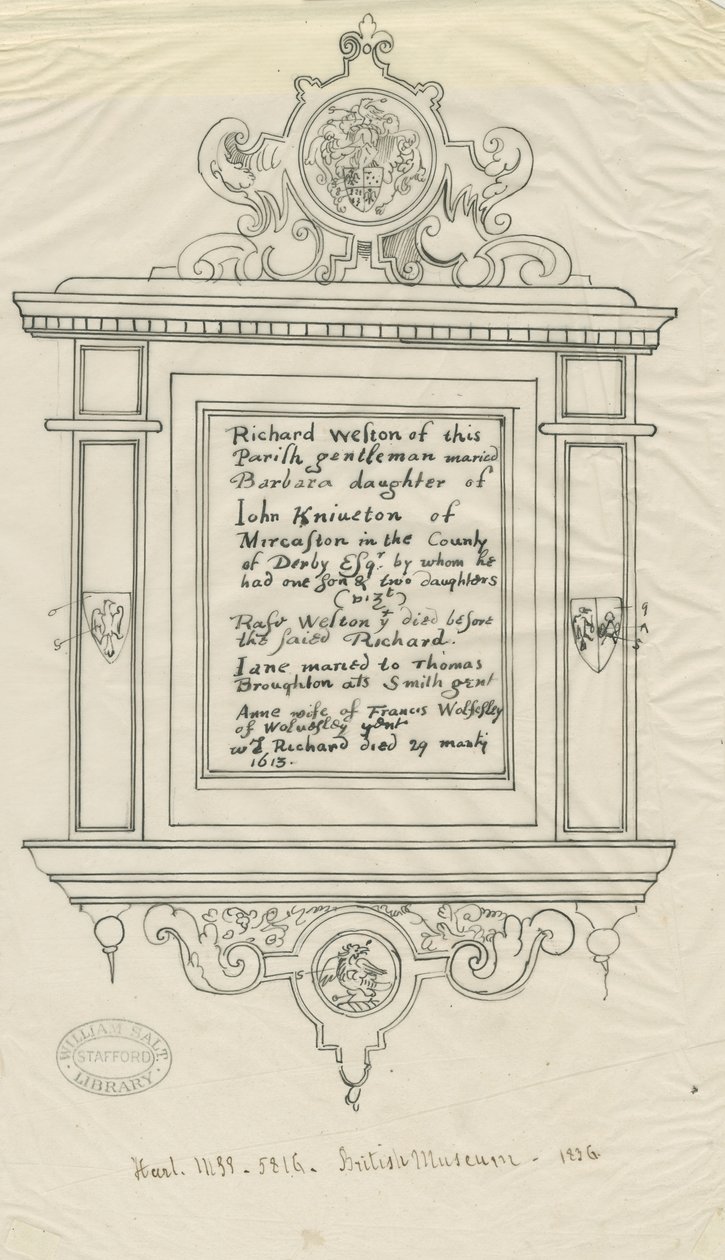 Richard Weſton of this
Pariſh gentleman maried
Barbara daughter of
Iohn Kniueton of
Mircaſton in the County
of Derby Eſqr. by whom he
had one ſon & two daughters
(vizt)
Rafe Weſton yt died before
the ſaied Richard.
Iane maried to Thomas
Broughton als Smith gent
Anne wife of Francis Wolfeſley
of Wolueſley gent
Richard died 29 martij
1613.
o
S
9
A
S
S
WILLIAM SALT
STAFFORD
LIBRARY
Harl. MSS. 5816. British Museum - 1836.